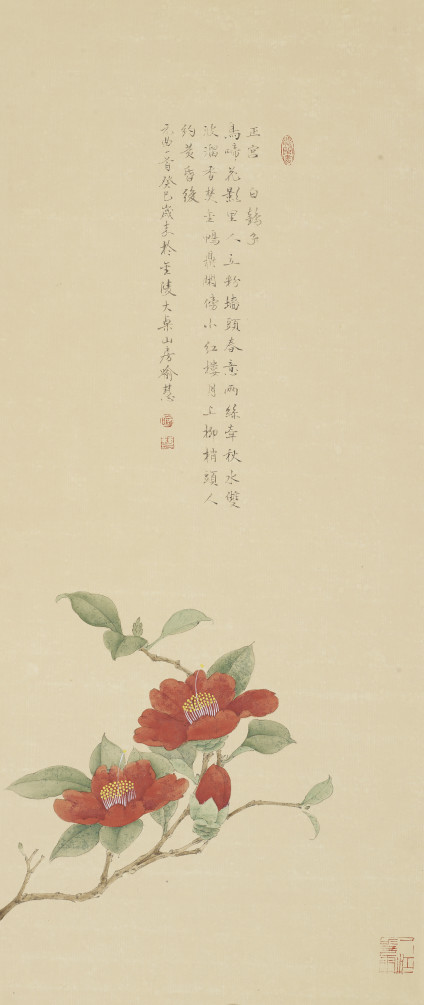 正宮 白鶴子
鳥啼花影里人立粉墻頭春意兩絲牽秋水雙
波溜香焚金鴨鼎閑傍小紅樓月上柳梢頭人
約黃昏後
元曲一首癸巳歲末於金陵大桌山房喻慧